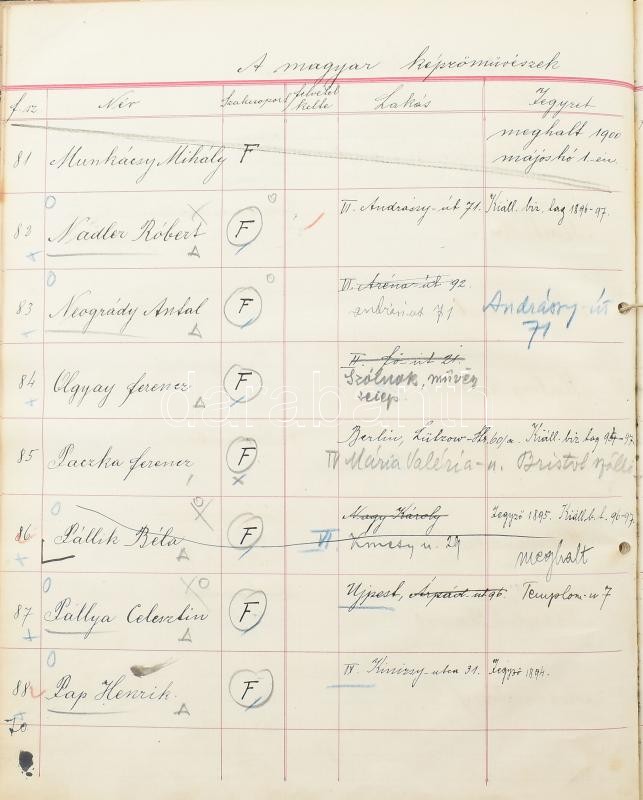 A magyar képzőművészek
f. sz Név Szakcsoport felvétel kelte Lakás Jegyzet
81 Munkácsy Mihály F meghalt 1900
májushó 1-én.
82 Nádler Róbert F VI. Andrássy-út 71. Kiáll. biz. tag 1896-97.
83 Neogrády Antal F VI. Aréna-út 92
andrássi út 71 Andrássy-út
71
84 Olgyay ferencz F II. fő-út 21.
Szólnok, művész
telep.
85 Paczka ferencz F Berlin, Lützow-Str. 60/a. Kiáll. biz tag 96-97.
IV Mária Valéria-u. Bristol szálló
86 Pállik Béla F Nagy Károly Jegyző 1895. Kiáll. b. t. 96-97.
VI u. 29 meghalt
87 Pállya Celesztin F Ujpest, Árpád út 96. Templom-u 7
88 Pap Henrik. F IV. Kinizsy-utca 31. Jegyző 1894.
70
darabanth